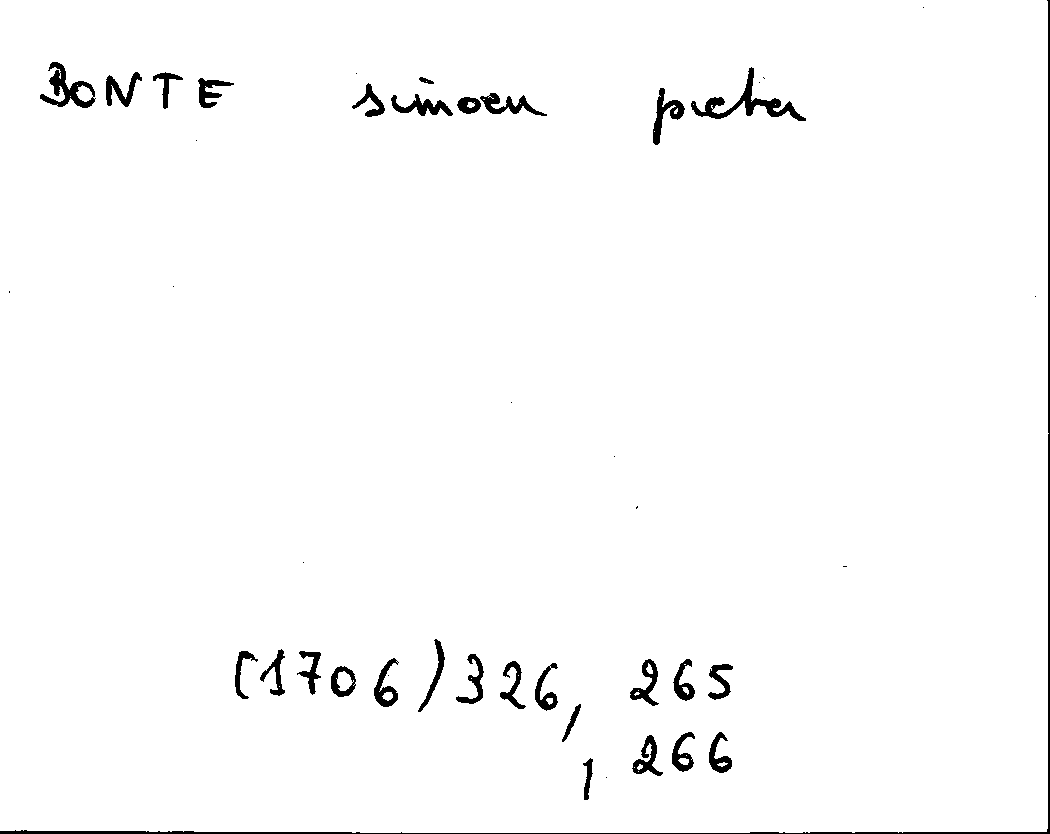 BONTE simoen pieter
(1706) 326, 265
, 266